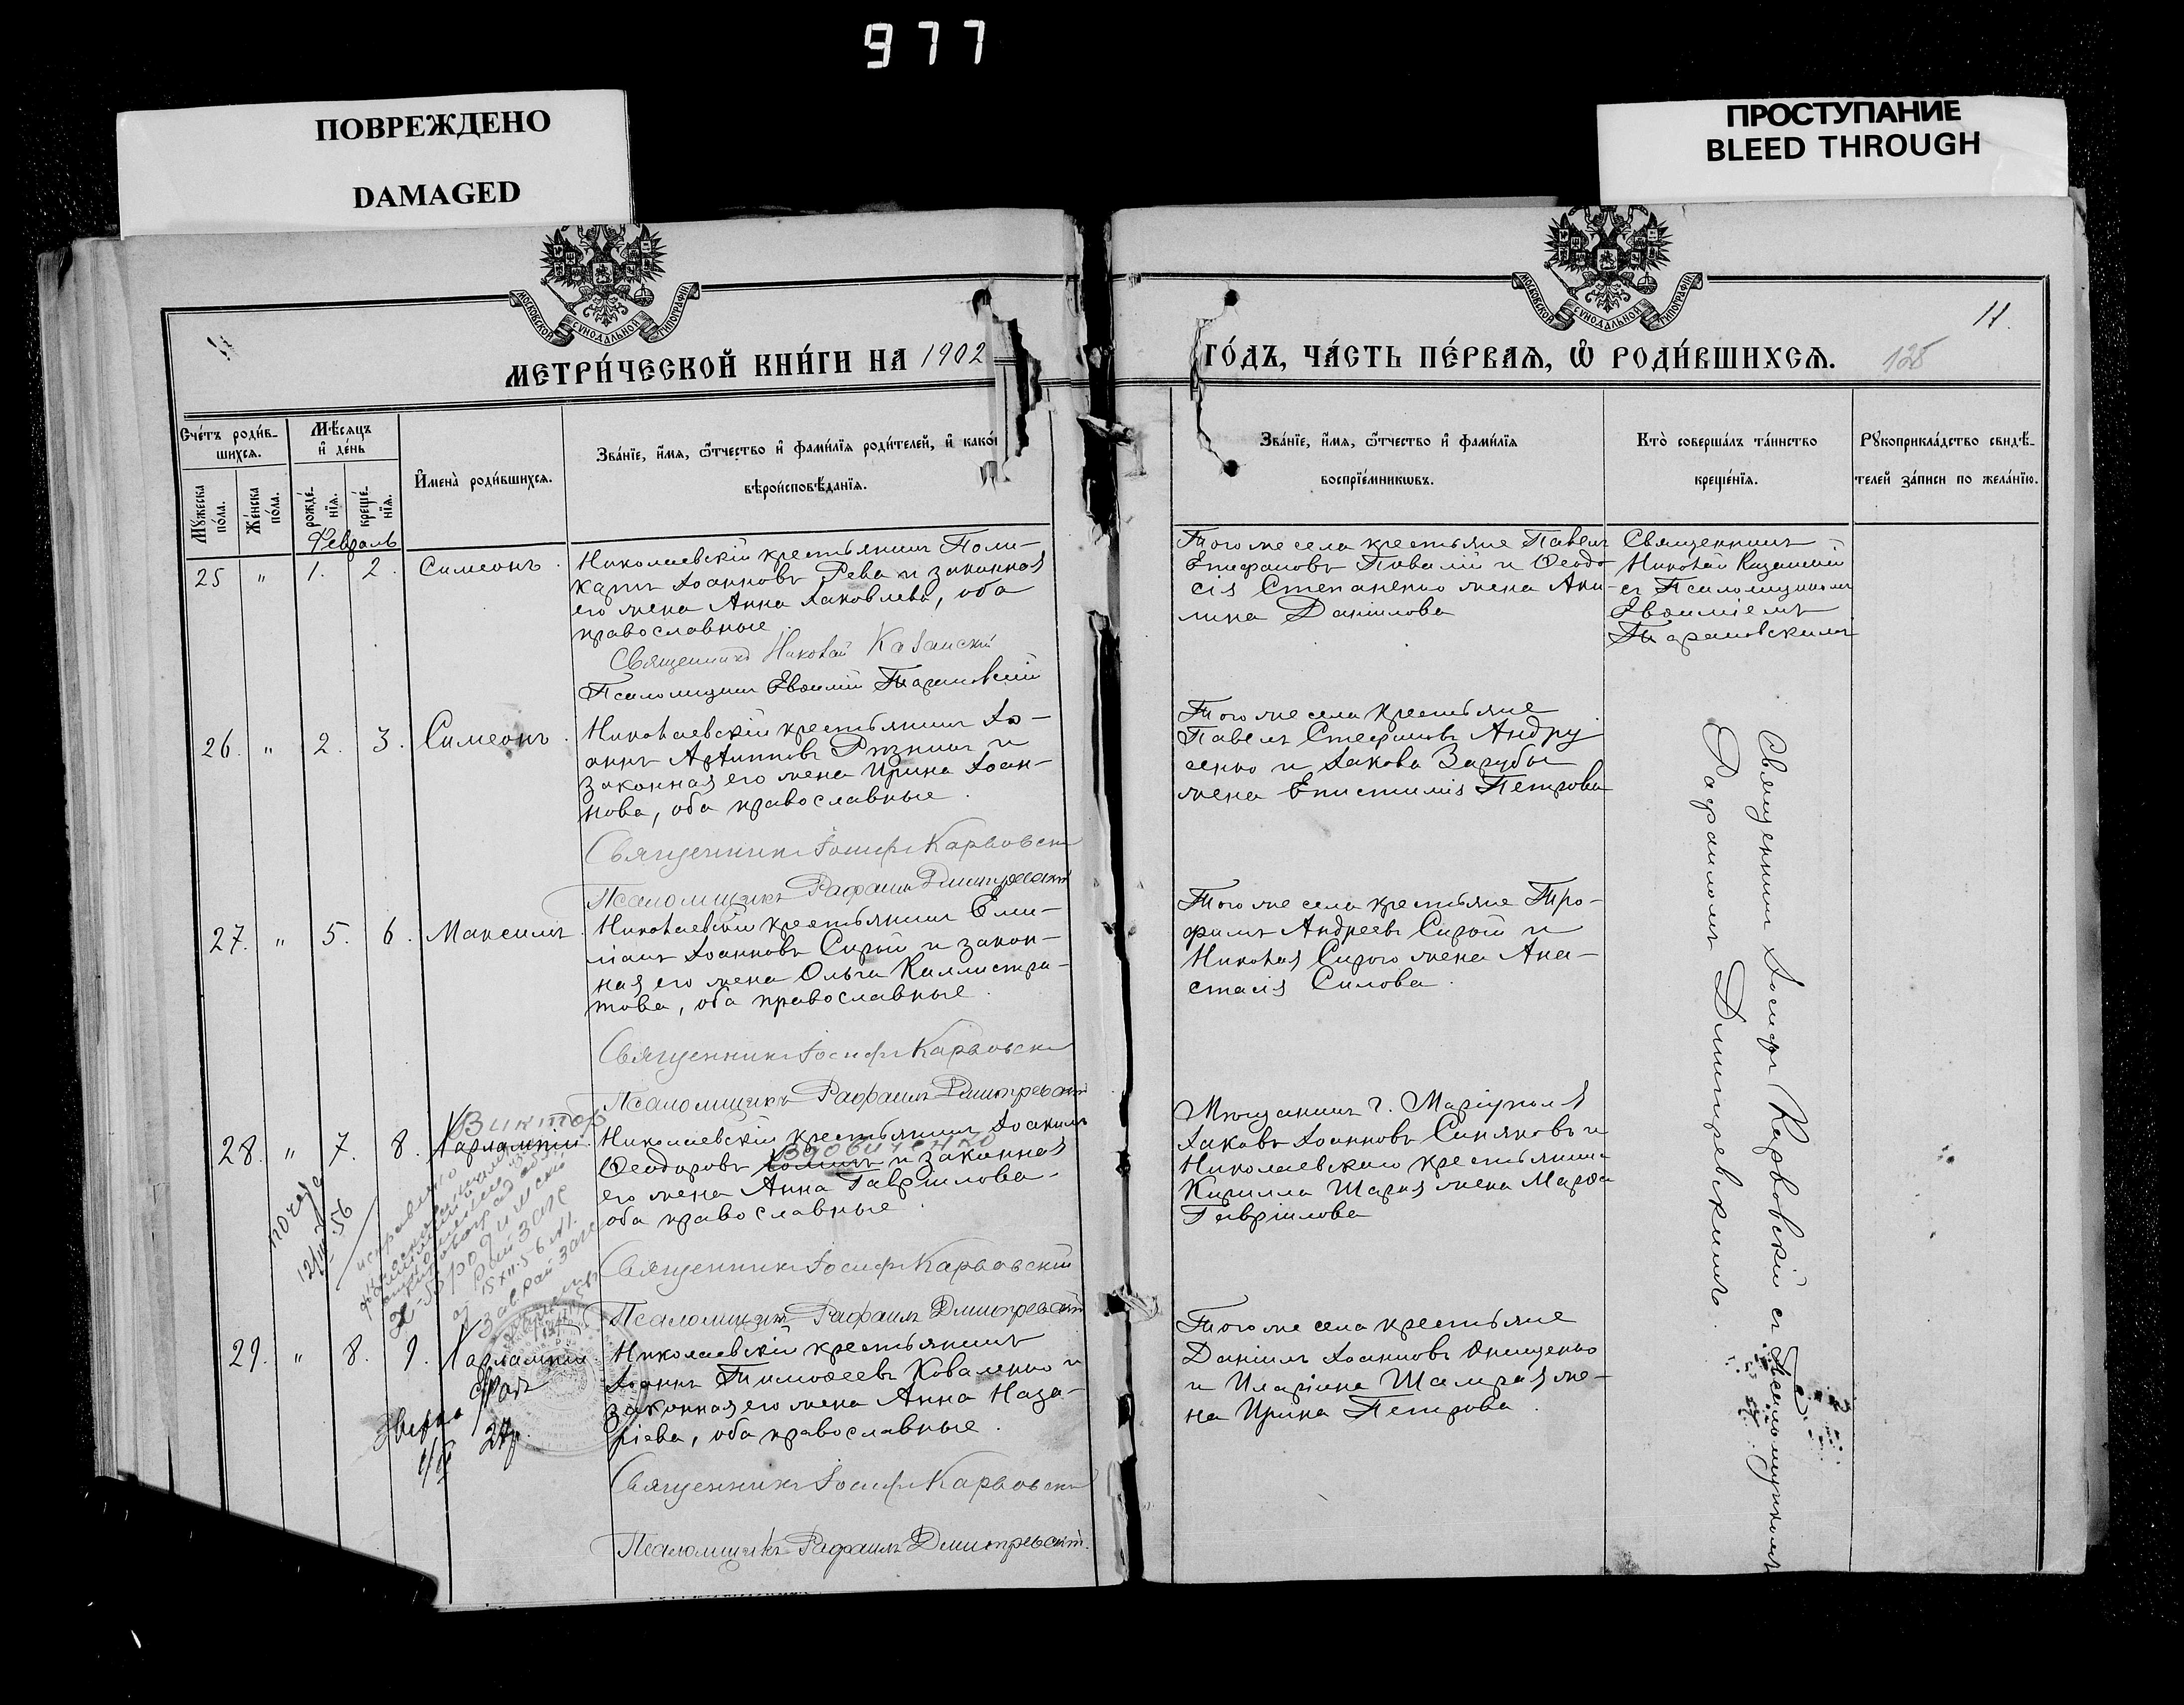 977
ПОВРЕЖДЕНО
DAMAGED
ПРОСТУПАНИЕ
BLEED THROUGH
МОСКОВСКОЙ СѴНОДАЛЬНОЙ ТИПОГРАФІИ
МОСКОВСКОЙ СѴНОДАЛЬНОЙ ТИПОГРАФІИ
11.
128
МЕТРИ́ЧЕСКОЙ КНИ́ГИ НА 1902
ГО́ДЪ, ЧА́СТЬ ПЕ́РВАѦ, Ѡ҆ РОДИ́ВШИХСѦ.
Сче́тъ роди́в-
шихсѧ.
Мꙋ́жеска по́ла.
Же́нска по́ла.
Мѣ́сѧцъ
и҆ де́нь
рожде́-
нїѧ.
креще́-
нїѧ.
И҆мена̀ роди́вшихсѧ.
Зва́нїе, и҆́мѧ, ѻ҆́тчество и҆ фами́лїѧ роди́телей, и҆ како́
вѣроисповѣ́данїѧ.
Зва́нїе, и҆́мѧ, ѻ҆́тчество и҆ фами́лїѧ
воспрїе́мникѡвъ.
Кто̀ соверша́лъ та́инство
креще́нїѧ.
Рꙋкоприкла́дство свидѣ́-
телей за́писи по жела́нїю.
Февраль
25 " 1. 2. Симеонъ.
Николаевскій крестьянинъ Поли-
карпъ Іоанновъ Рева и законная
его жена Анна Іаковлева, оба
православные.
Священникъ Николай Казанскій
Псаломщикъ Евѳимій Тарановскій
Того же села крестьяне Павелъ
Епифановъ Повалій и Ѳеодо-
сія Степаненко жена Аки-
лина Даніилова
Священникъ
Николай Казанскій
съ Псаломщикомъ
Евѳиміемъ
Тарановскимъ
26. " 2. 3. Симеонъ.
Николаевскій крестьянинъ Іо-
аннъ Архиповъ Рѣзникъ и
законная его жена Ирина Іоан-
нова, оба православные.
Священникъ Іосифъ Карвовскі
Псаломщикъ Рафаилъ Дмитревскій
Того же села крестьяне
Павелъ Стефановъ Андру
сенко и Іакова Загубы
жена Епистимія Петрова
27. " 5. 6. Максимъ.
Николаевскій крестьянинъ Еми-
ліанъ Іоанновъ Сирый и закон-
ная его жена Ольга Каллистра-
това, оба православные.
Священникъ Іосифъ Карвовскі
Псаломщикъ Рафаилъ Дмитревскій
Того же села крестьяне Тро-
фимъ Андреевъ Сирый и
Николая Сирого жена Ана-
стасія Силова.
Виктор
28. " 7. 8. Харлампій.
Николаевскій крестьянинъ Іоакимъ
Вдовиченко
Ѳеодоровъ и законная
его жена Анна Гавріилова.
оба православные.
Священникъ Іосифъ Карвовскій
Псаломщикъ Рафаилъ Дмитревскій
Мѣщанинъ г. Маріуполя
Іаковъ Іоанновъ Синяковъ и
Николаевскаго крестьянина
Кирилла Шарая жена Марѳа
Гавріилова
исправлено
15 XII-56
29. " 8. 9. Харлампій.
Николаевскій крестьянинъ
Іоаннъ Тимоѳеевъ Коваленко и
законная его жена Анна Наза-
ріева, оба православные.
Священникъ Іосифъ Карвовскі
Псаломщикъ Рафаилъ Дмитревскій.
Того же села крестьяне
Даніилъ Іоанновъ Онищенко
и Иларіона Шамрая же-
на Ирина Петрова.
Священникъ Іосифъ Карвовскій съ Псаломщикомъ
Рафаиломъ Дмитревскимъ.